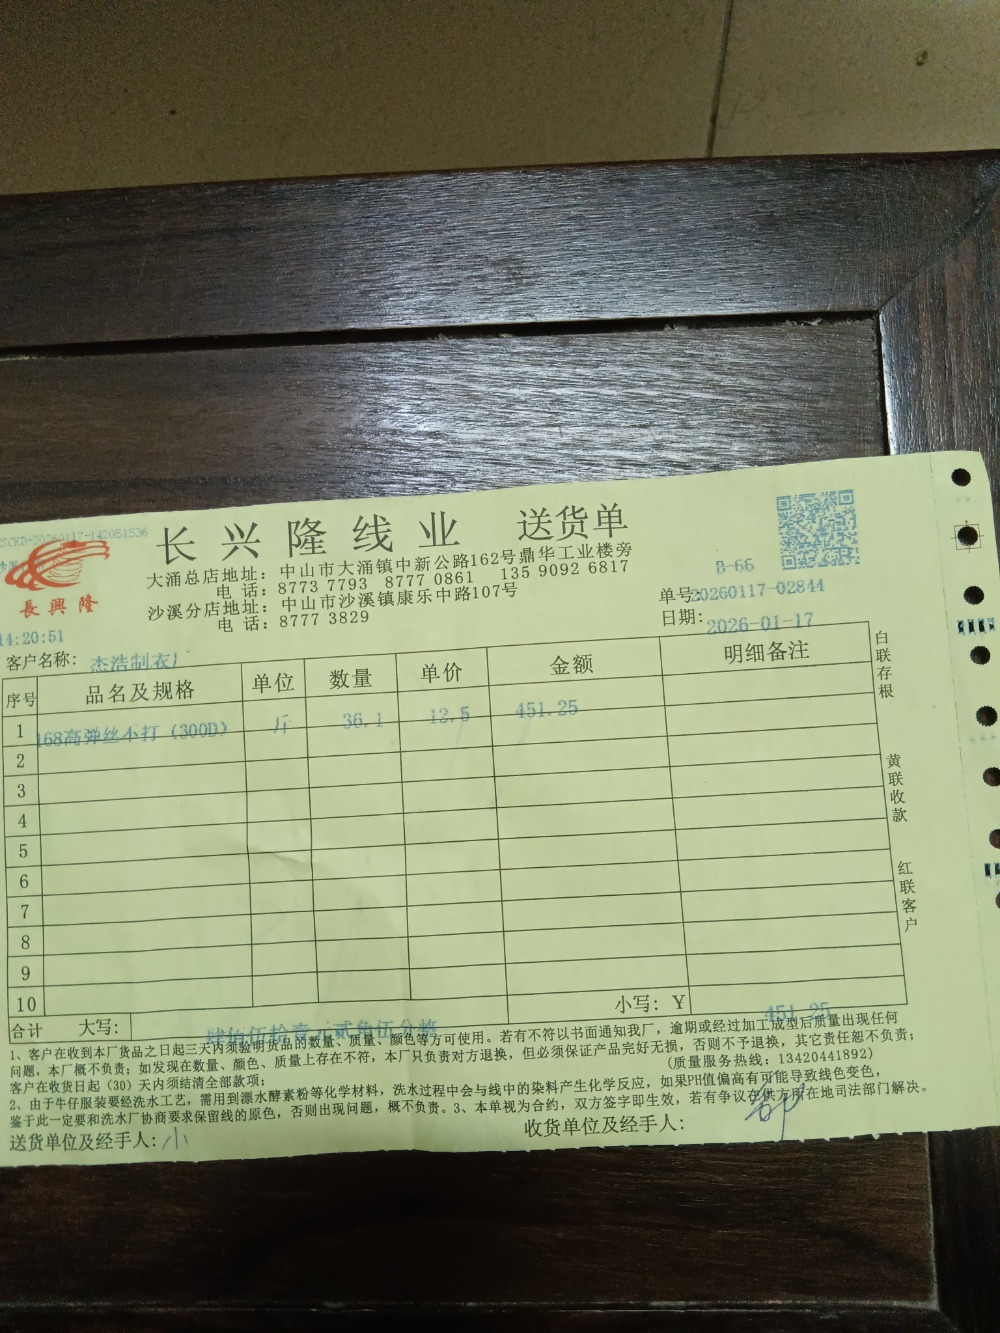 长兴隆线业 送货单
長興隆
大涌总店地址：中山市大涌镇中新公路162号鼎华工业楼旁
电 话：8773 7793 8777 0861 135 9092 6817
沙溪分店地址：中山市沙溪镇康乐中路107号
电 话：8777 3829
B-66
单号：20260117-02844
日期：2026-01-17
14:20:51
客户名称：杰浩制衣厂
序号 品名及规格 单位 数量 单价 金额 明细备注
1 168高弹丝小打（300D） 斤 36.1 12.5 451.25
2
3
4
5
6
7
8
9
10
合计 大写：肆佰伍拾壹元贰角伍分整 小写：Y 451.25
白联存根
黄联收款
红联客户
1、客户在收到本厂货品之日起三天内须验明货品的数量、质量、颜色等方可使用。若有不符以书面通知我厂，逾期或经过加工成型后质量出现任何
问题，本厂概不负责；如发现在数量、颜色、质量上存在不符，本厂只负责对方退换，但必须保证产品完好无损，否则不予退换，其它责任恕不负责；
客户在收货日起（30）天内须结清全部款项； (质量服务热线：13420441892)
2、由于牛仔服装要经洗水工艺，需用到漂水酵素粉等化学材料，洗水过程中会与线中的染料产生化学反应，如果PH值偏高有可能导致线色变色，
鉴于此一定要和洗水厂协商要求保留线的原色，否则出现问题，概不负责。3、本单视为合约，双方签字即生效，若有争议在供方所在地司法部门解决。
送货单位及经手人：小
收货单位及经手人：